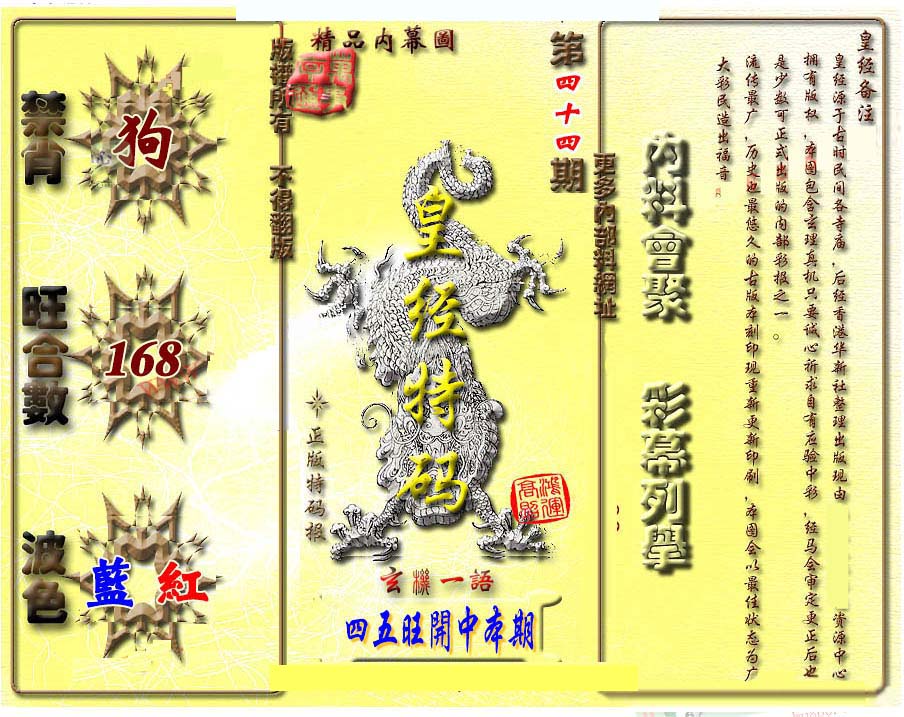 精品内幕圖
第四十四期
版權所有 不得翻版
更多内部料網址
皇经特码
正版特码报
鴻運高照
玄機一語
四五旺開中本期
禁肖
狗
旺合數
168
波色
藍 紅
内料會聚
彩幕列擧
皇经备注
皇经源于古时民间各寺庙,后经香港华新社整理出版现由 资源中心
拥有版权,本图包含玄理真机只要诚心祈求自有应验中彩,经马会审定更正后也
是少数可正式出版的内部彩报之一。
流传最广,历史也最悠久的古版本刻印现重新更新印刷,本图会以最佳状态为广
大彩民造出福音